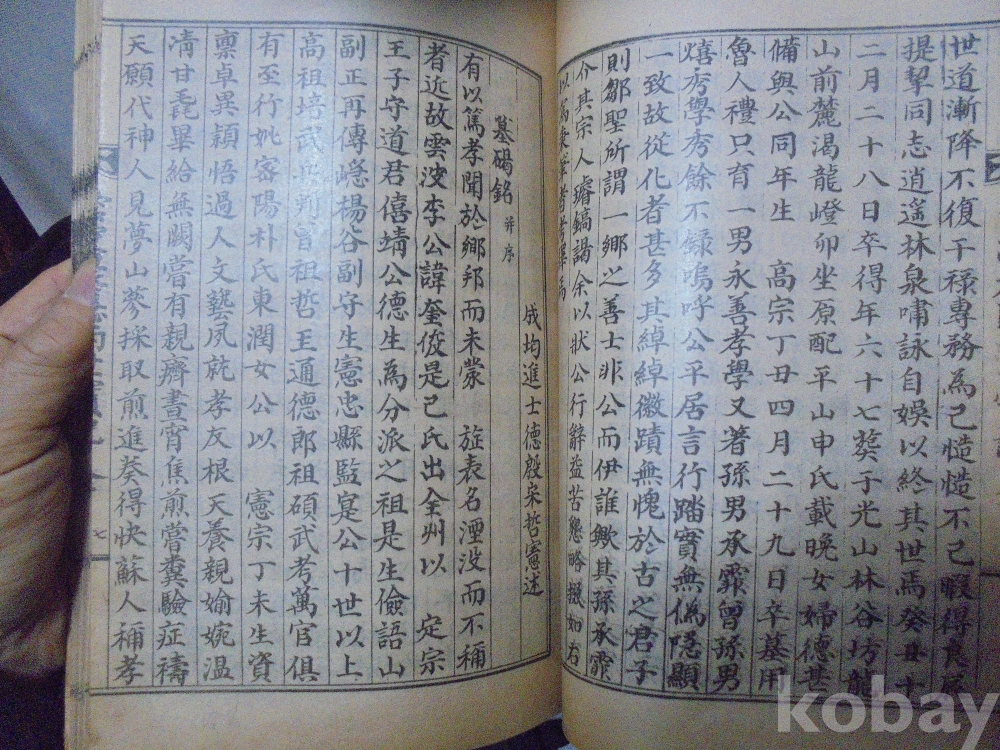 世道漸降不復干祿專務爲己慥慥不已暇得良辰
提挈同志逍遙林泉嘯詠自娛以終其世焉癸丑十
二月二十八日卒得年六十七葬于光山林谷坊龍
山前麓渴龍嶝卯坐原配平山申氏載晚女婦德甚
備與公同年生 高宗丁丑四月二十九日卒墓用
魯人禮只育一男永善孝學又著孫男承霏曾孫男
熺秀學秀餘不錄嗚呼公平居言行踏實無僞隱顯
一致故從化者甚多其綽綽徽蹟無愧於古之君子
則鄒聖所謂一鄕之善士非公而伊誰歟其孫承霏
介其宗人璿鎬謁余以狀公行辭益苦懇略掇如右
以
墓碣銘 并序
成均進士德殷宋哲憲述
有以篤孝聞於鄕邦而未蒙 旌表名湮沒而不稱
者近故雲波李公諱奎俊是已氏出全州以 定宗
王子守道君僖靖公德生爲分派之祖是生儉語山
副正再傳嶾楊谷副守生憲忠縣監寔公十世以上
高祖培武 曾祖哲王通德郎祖碩武考萬官俱
有至行妣密陽朴氏東潤女公以 憲宗丁未生資
禀卓異穎悟過人文藝夙就孝友根天養親婾婉溫
凊甘毳畢給無闕嘗有親癠晝宵焦煎嘗糞驗症禱
天願代神人見夢山蔘採取煎進葵得快蘇人稱孝
七
kobay